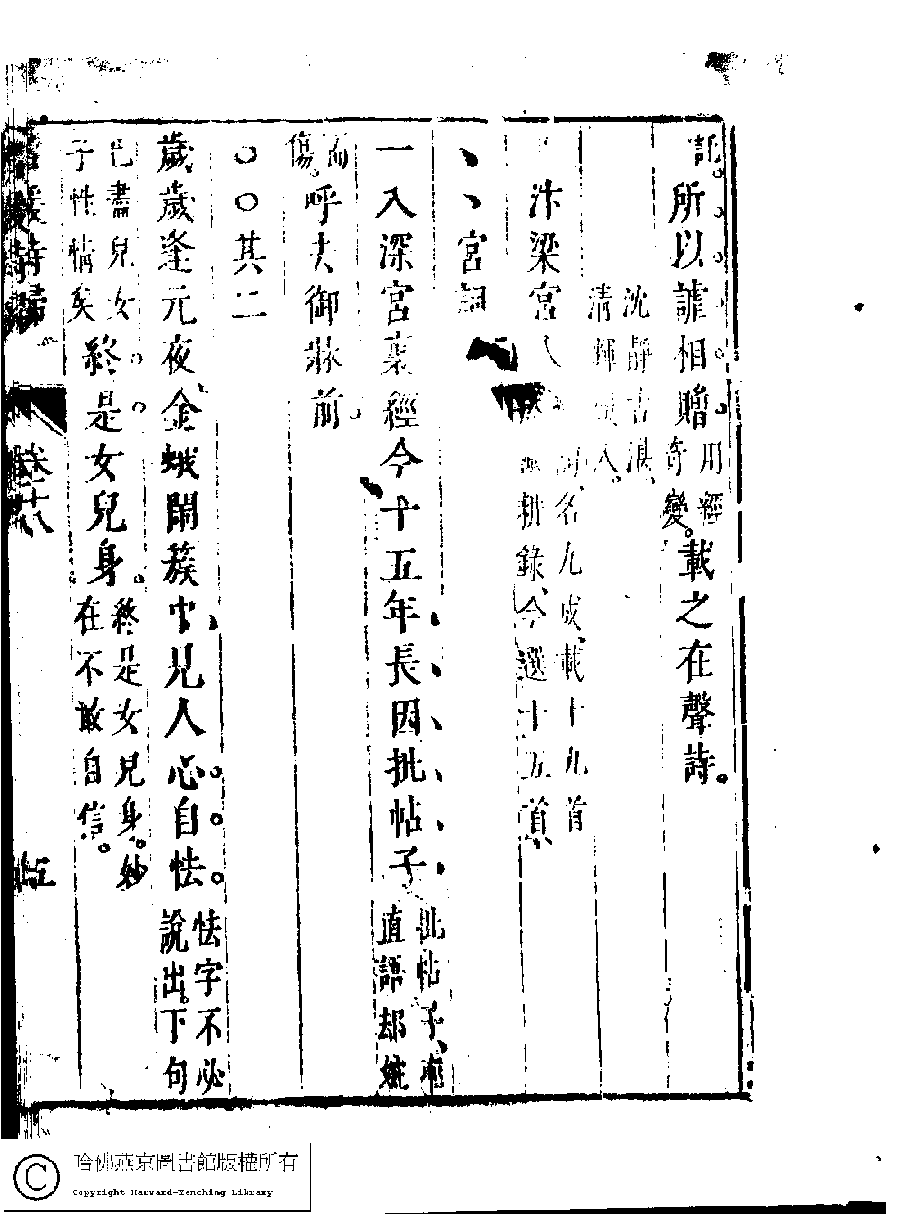 託所以誰相贈用經奇變載之在聲詩
沈靜古淇清輝入
汴梁宮人
名九成載十九首耕錄今選十五首
宮詞
一入深宮裏經今十五年長因批帖子批帖子直語却
傷呼去御牀前
其二
歲歲逢元夜金蛾鬧簇巾見人心自怯怯字不必說出下句
已盡兒女子性情矣終是女兒身終是女兒身妙在不敢自信
卷十八
五
哈佛燕京圖書館版權所有
Copyright Harvard-Yenching Library